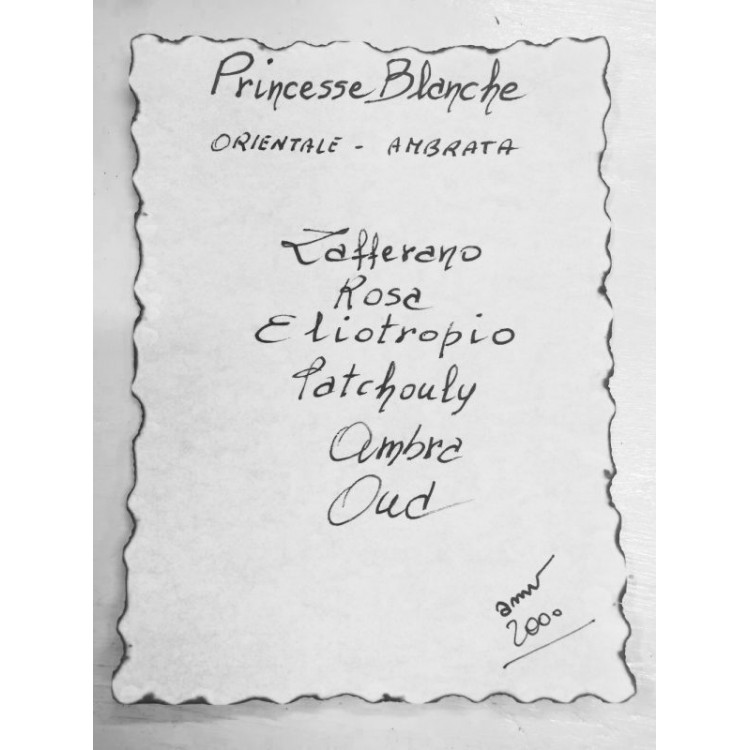 Princesse Blanche
ORIENTALE - AMBRATA
Zafferano
Rosa
Eliotropio
Patchouly
Ambra
Oud
2000